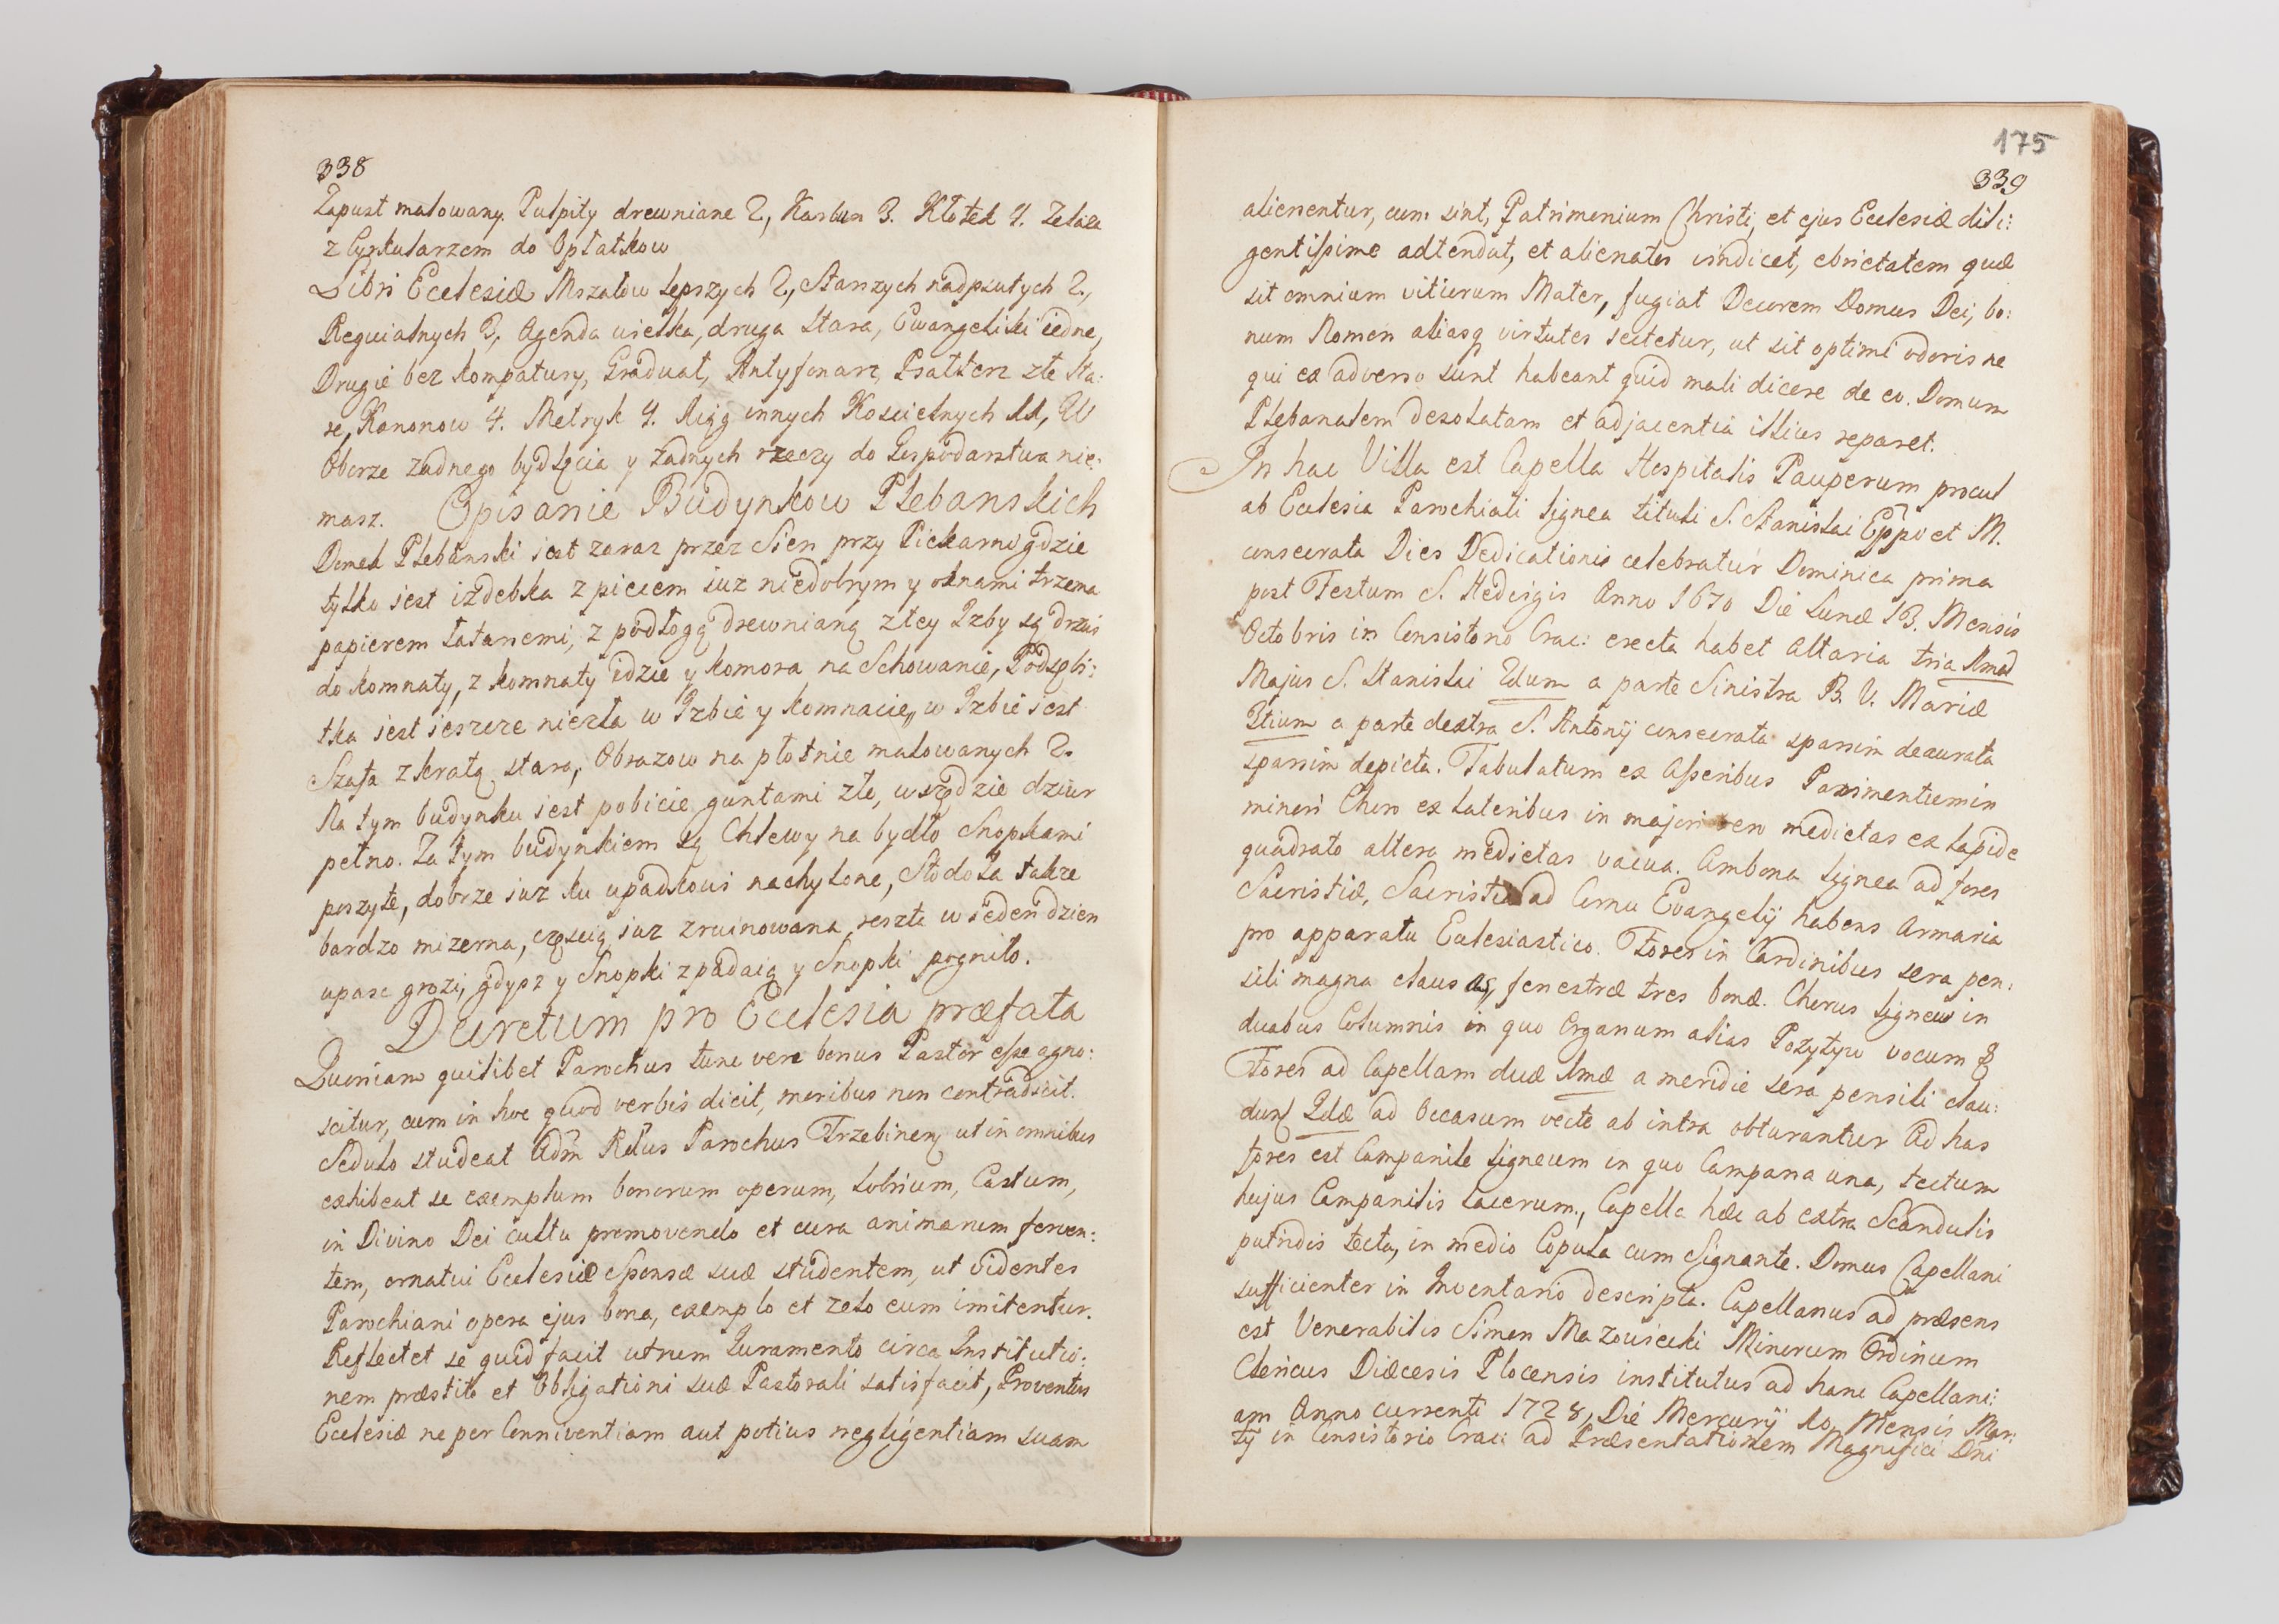 338
Zapust malowany. Pulpity drewniane 2, Karbun 3. Kłotek 4. Zelaza
z Cyrkularzem do Opłatkow
Libri Ecclesiæ Mszałow lepszych 2, Starszych nadpsutych 2,
Requialnych 3, Agenda wielka, druga stara, Ewangeliki iedne,
Drugie bez kompatury, Graduał, Antyfonarz, Psałterz złe sta:
re, Kanonow 4. Metryk 4. Xiąg innych Koscielnych 11, W
Oborze zadnego bydlęcia y żadnych rzeczy do Gospodarstwa nie:
masz. Opisanie Budynkow Plebanskich
Domek Plebanski iest zaraz przez Sien przy Piekarni gdzie
tylko iest izdebka z piecem iuz niedobrym y oknami trzema
papierem łatanemi, z podłogą drewnianą złey Izby są drzwi
do komnaty, z komnaty idzie y komora na Schowanie, Podsębi:
tka iest ieszcze niezła w Izbie y komnacie, w Izbie iest
Szafa z kratą stara, Obrazow na płotnie malowanych 2.
Na tym budynku iest pobicie guntami złe, wszędzie dziur
pełno. Za tym budynkiem są Chlewy na bydło Snopkami
poszyte, dobrze iuz ku upadkowi nachylone, Stodoła także
bardzo mizerna, częścią iuz zruinowana, reszta w ieden dzien
upasc grozi, gdysz y Snopki zpadaią y Snopki pogniło.
Decretum pro Ecclesia præfata
Quoniam quilibet Parochus tunc vere bonus Pastor esse agno:
scitur, cum in hoc quod verbis dicit, moribus non contradicit.
Sedulo studeat Adm̃ Rdus Parochus Trzebinen, ut in omnibus
exhibeat se exemplum bonorum operum, sobrium, Castum,
in Divino Dei cultu promovendo et cura animarum ferven:
tem, ornatui Ecclesiæ Sponsæ suæ studentem, ut videntes
Parochiani opera ejus bona, exemplo et zelo eum imitentur.
Reflectet se quid facit utrum Juramento circa Institutio:
nem præstito et Obligationi suæ Pastorali satisfacit, Proventus
Ecclesiæ ne per Conniventiam aut potius negligentiam suam
175
339
alienentur, cum sint, Patrimonium Christi, et ejus Ecclesiæ dili:
gentissime adtendat, et alienatos vindicet, ebrietatem quæ
sit omnium vitiorum Mater, fugiat Decorem Domus Dei, bo:
num Nomen aliasq virtutes sectetur, ut sit optimi odoris ne
qui ex adverso sunt habeant quid mali dicere de eo. Domum
Plebanalem desolatam et adjacentia illius reparet.
In hac Villa est Capella Hospitalis Pauperum procul
ab Ecclesia Parochiali lignea tituli S. Stanislai Eppo et M.
consecrata Dies Dedicationis celebratur Dominica prima
post Festum S. Hedvigis Anno 1670 Die Lunæ 13. Mensis
Octobris in Consistorio Crac: erecta habet Altaria tria 1mũ
Majus S. Stanislai 2dum a parte Sinistra B. V. Mariæ
3tium a parte dextra S. Antonij consecrata sparsim deaurata
sparsim depicta. Tabulatum ex Asseribus Pavimentum in
minori Choro ex lateribus in majori vero medietas ex lapide
quadrato altera medietas vacua. Ambona lignea ad fores
Sacristiæ, Sacristia ad Cornu Evangelij habens Armaria
pro apparatu Ecclesiastico. Fores in Cardinibus sera pen:
sili magna clausas, fenestræ tres bonæ. Chorus ligneus in
duabus Columnis in quo Organum alias Pozytyw vocum 8
Fores ad Capellam duæ 1mæ a meridie sera pensili clau:
dunt 2dæ ad Occasum vecte ab intra obturantur Ad has
fores est Campanile ligneum in quo Campana una, tectum
hujus Campanilis lacerum, Capella hæc ab extra Scandulis
putridis tecta, in medio Copula cum Signante. Domus Capellani
sufficienter in Inventario descripta. Capellanus ad præsens
est Venerabilis Simon Mazowiecki Minorum Ordinum
Clericus Diæcesis Plocensis institutus ad hanc Capellani:
am Anno currenti 1728, Die Mercurij 10 Mensis Mar:
tij in Consistorio Crac: ad Præsentationem Magnifici Dni